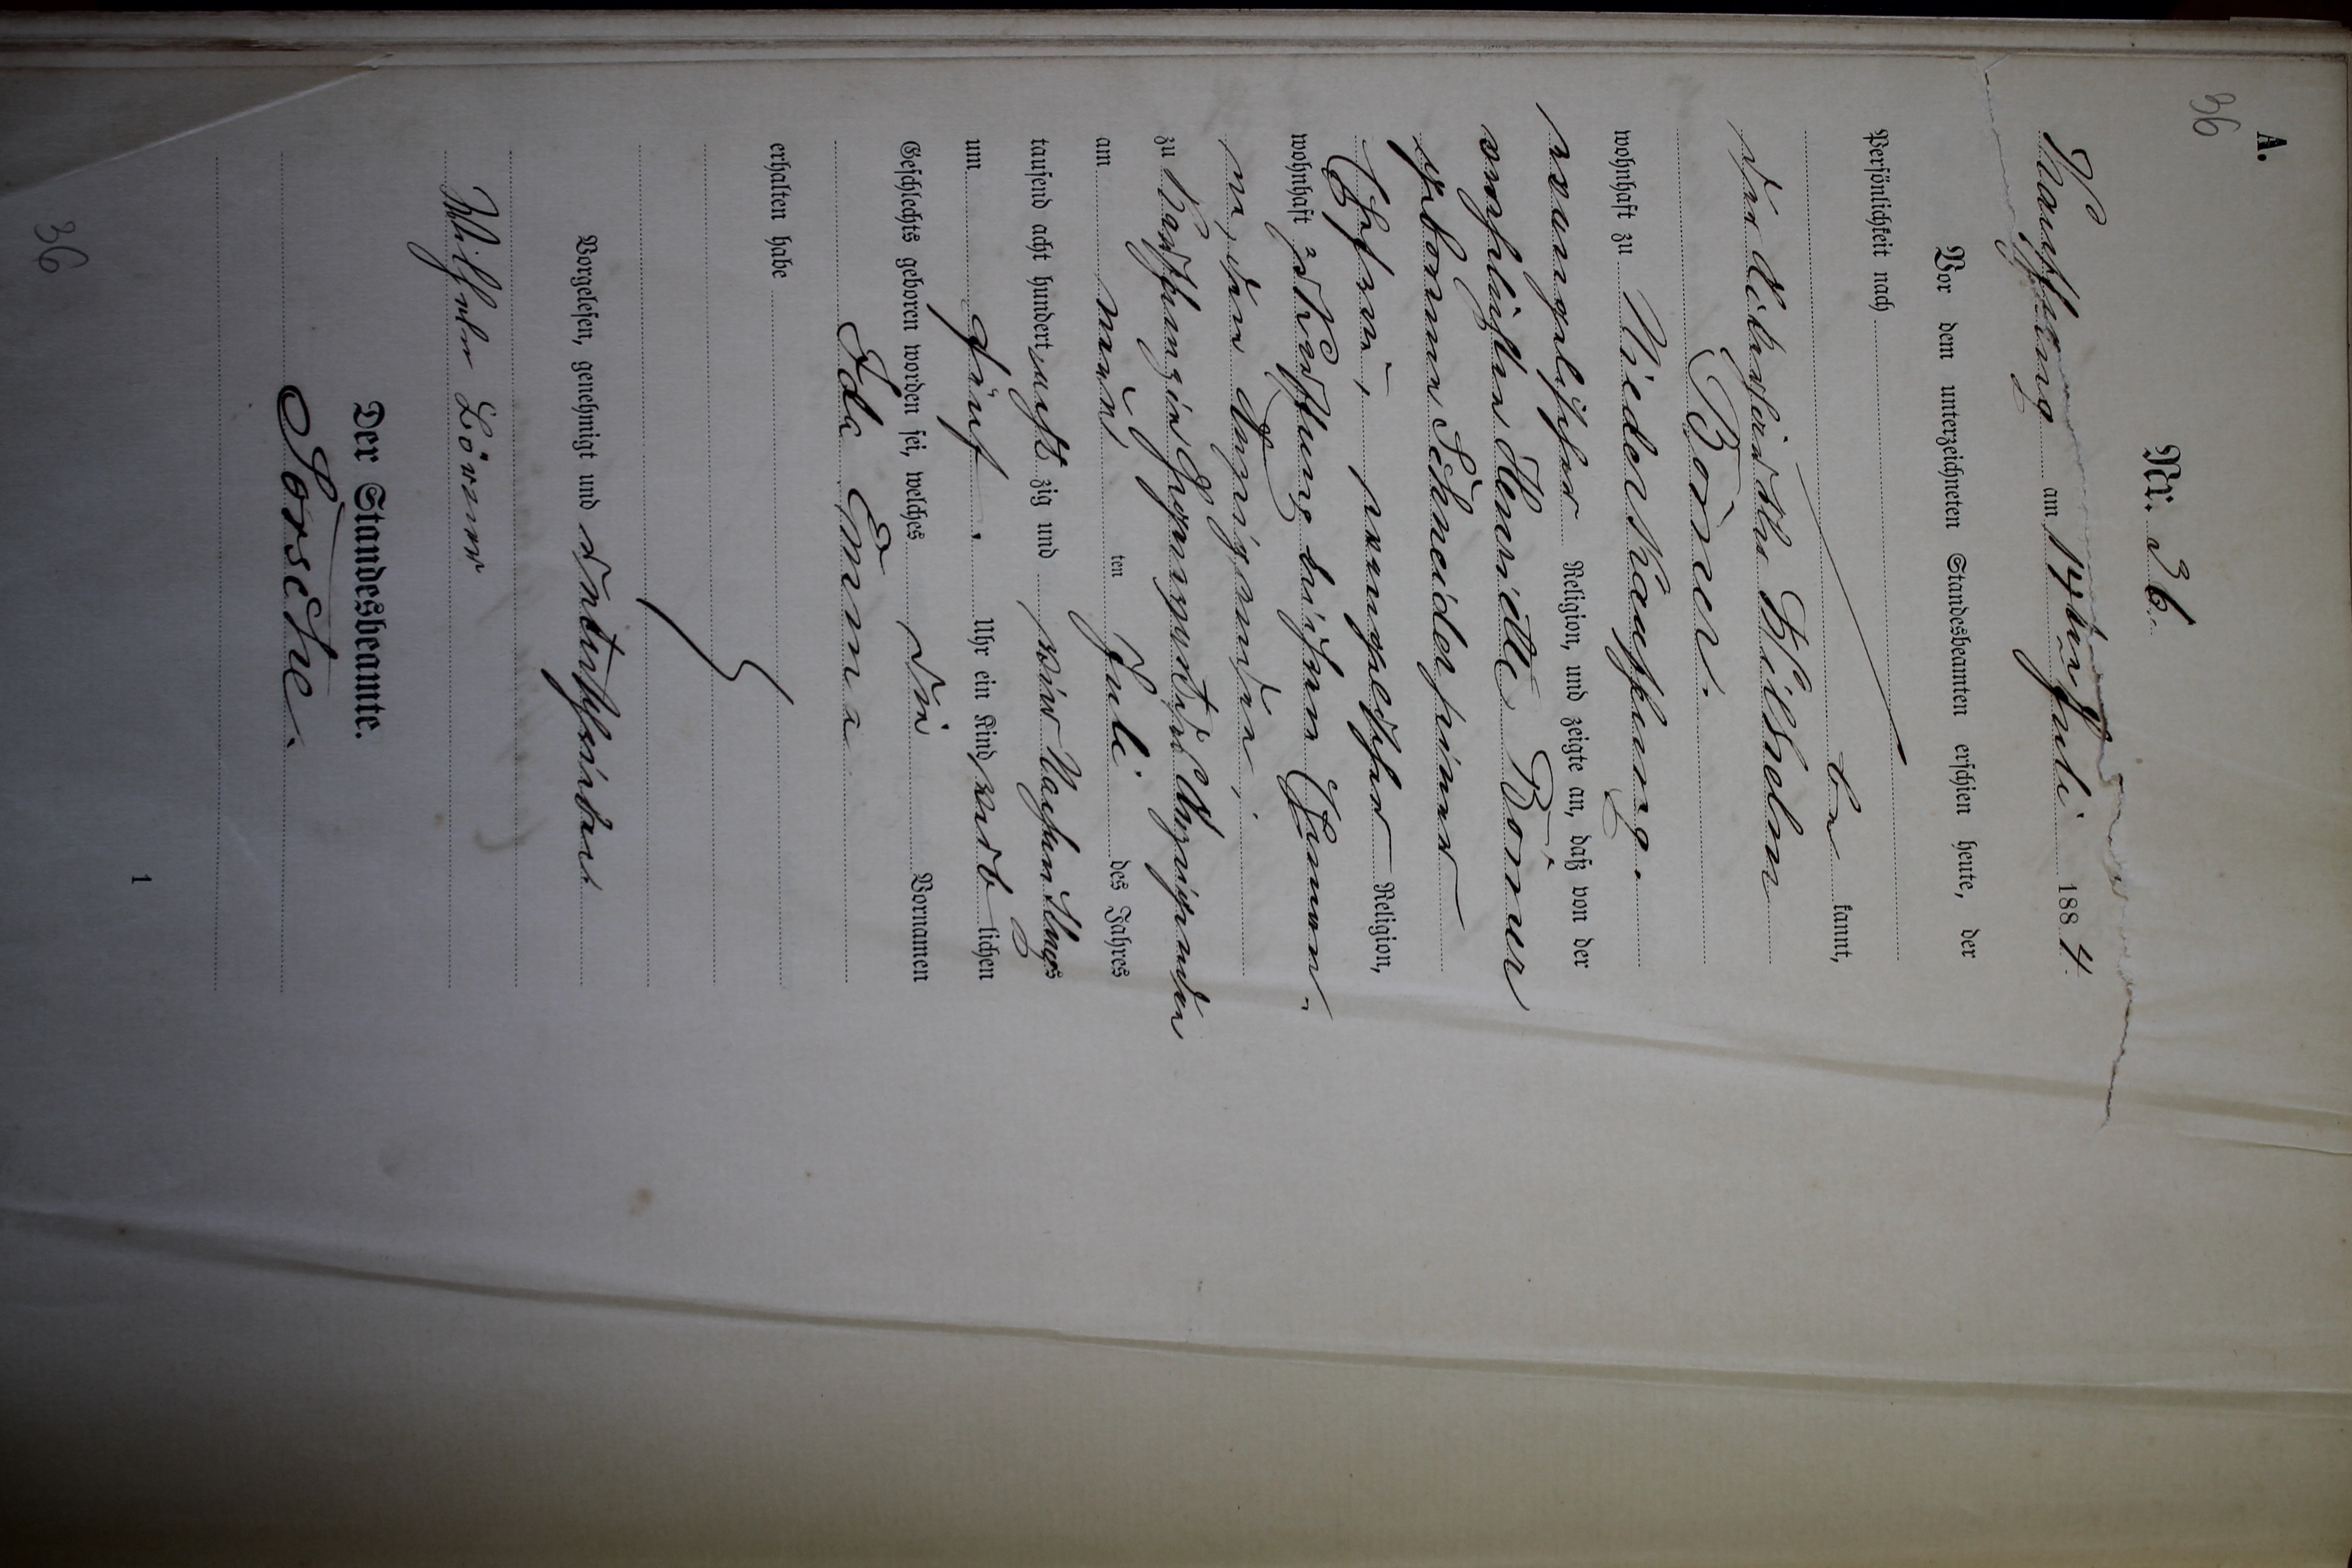 A.
36
Nr. 36.
Kauffung am 14ten Juli 1884.
Vor dem unterzeichneten Standesbeamten erschien heute, der
Persönlichkeit nach
be kannt,
der Wilhelm
Börner.
wohnhaft zu Nieder Kauffung.
evangelischer Religion, und zeigte an, daß von der
verehelichten Henriette Börner
geborenen Schneider seiner
Ehefrau, evangelischer Religion,
wohnhaft zu Kauffung bei ihrem Ehemann
zu Kauffung in gegenwart des Anzeigenden
am neun ten Juli des Jahres
tausend acht hundert acht zig und vier Nachmittags
um fünf Uhr ein Kind weib lichen
Geschlechts geboren worden sei, welches die Vornamen
Ida Emma
erhalten habe
Vorgelesen, genehmigt und unterschrieben
Wilhelm Börner
Der Standesbeamte.
36
1